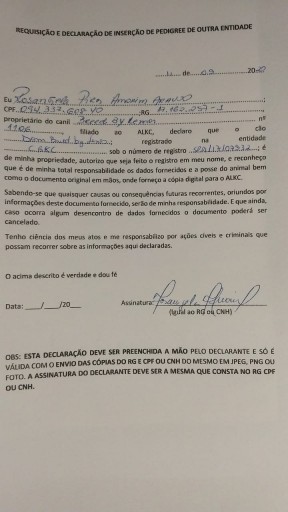 REQUISIÇÃO E DECLARAÇÃO DE INSERÇÃO DE PEDIGREE DE OUTRA ENTIDADE
de 09 20
Eu Amorim
CPF RG
proprietário do canil By nº
1106 , filiado ao ALKC, declaro que o cão
registrado na entidade
CBKC sob o número de registro ; é
de minha propriedade, autorizo que seja feito o registro em meu nome, e reconheço
que é de minha total responsabilidade os dados fornecidos e a posse do animal bem
como o documento original em mãos, onde forneço a cópia digital para o ALKC.
Sabendo-se que quaisquer causas ou consequências futuras recorrentes, oriundos por
informações deste documento fornecido, serão de minha responsabilidade. E que ainda,
caso ocorra algum desencontro de dados fornecidos o documento poderá ser
cancelado.
Tenho ciência dos meus atos e me responsabilizo por ações cíveis e criminais que
possam recorrer sobre as informações aqui declaradas.
O acima descrito é verdade e dou fé
Data: ___/___/20__ Assinatura:
(Igual ao RG ou CNH)
OBS: ESTA DECLARAÇÃO DEVE SER PREENCHIDA A MÃO PELO DECLARANTE E SÓ É
VÁLIDA COM O ENVIO DAS CÓPIAS DO RG E CPF OU CNH DO MESMO EM JPEG, PNG OU
FOTO. A ASSINATURA DO DECLARANTE DEVE SER A MESMA QUE CONSTA NO RG CPF
OU CNH.